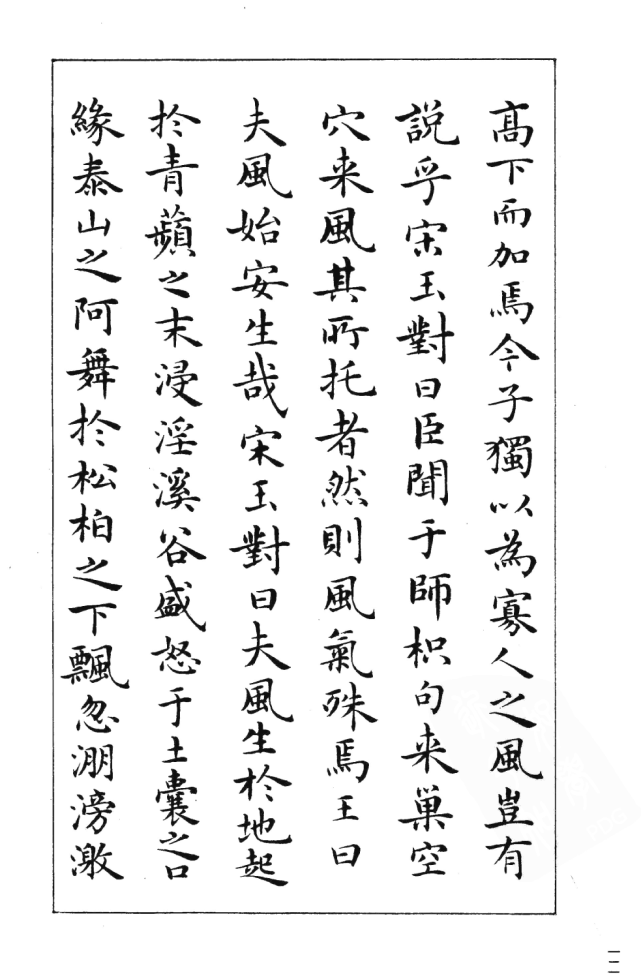 髙下而加焉今子獨以為寡人之風豈有
説乎宋玉對曰臣聞于師枳句来巢空
穴来風其所托者然則風氣殊焉王曰
夫風始安生哉宋玉對曰夫風生於地起
於青蘋之末浸淫溪谷盛怒于土囊之口
緣泰山之阿舞於松柏之下飄忽淜滂激